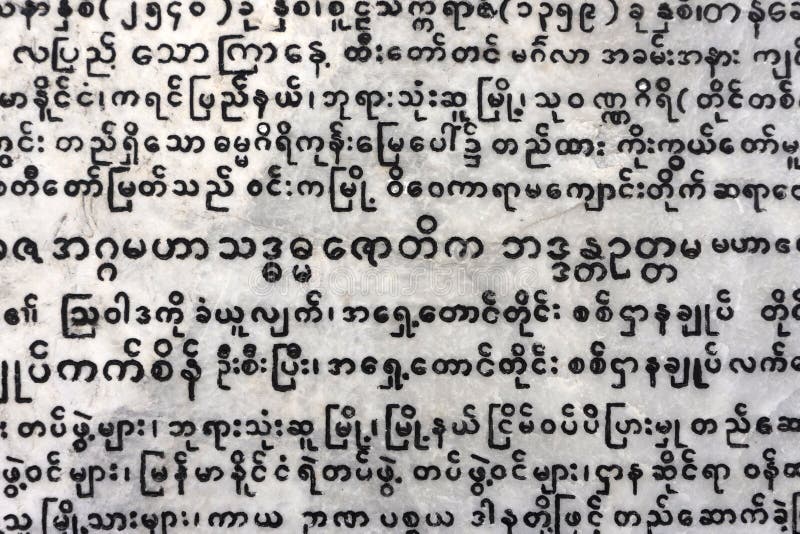 သနာနှစ်(၂၅၄၀)ခု နှစ်၊စူဠသက္ကရာဇ်(၁၃၅၉)ခု နှစ်၊တန်ဆော
လပြည် သော ကြာနေ့ ထီးတော်တင် မင်္ဂလာ အခမ်းအနား ကျင်
မာနိုင်ငံ၊ကရင်ပြည်နယ်၊ဘုရားသုံးဆူမြို့၊သုဝဏ္ဏဂိရိ(တိုင်တစ်
တွင်း တည်ရှိသော ဓမ္မဂိရိကုန်းမြေပေါ်၌ တည်ထား ကိုးကွယ်တော်မူ
စေတီတော်မြတ်သည် ဝင်းကမြို့ ဝိဝေကာရာမကျောင်းတိုက် ဆရာတေ
ဓဇ အဂ္ဂမဟာ သဒ္ဓမ္မ ဇောတိက ဘဒ္ဒန္တဥတ္တမ မဟာထေ
၏ ဩဝါဒကို ခံယူလျက်၊အရှေ့တောင်တိုင်း စစ်ဌာနချုပ် တိုင်
ချုပ်ကက်စိန် ဦးစီးပြီး၊အရှေ့တောင်တိုင်း စစ်ဌာနချုပ်လက်အေ
း တပ်ဖွဲ့များ၊ဘုရားသုံးဆူမြို့၊မြို့နယ်ငြိမ်ဝပ်ပိပြားမှု တည်ဆော
ဖွဲ့ဝင်များ၊မြန်မာနိုင်ငံရဲတပ်ဖွဲ့ တပ်ဖွဲ့ဝင်များ၊ဌာနဆိုင်ရာ ဝန်ထ
သူမြို့သားများ၊ကာယ ဉာဏ ပစ္စယ ဒါနတို့ဖြင့် တည်ဆောက်ခဲ့ပြ